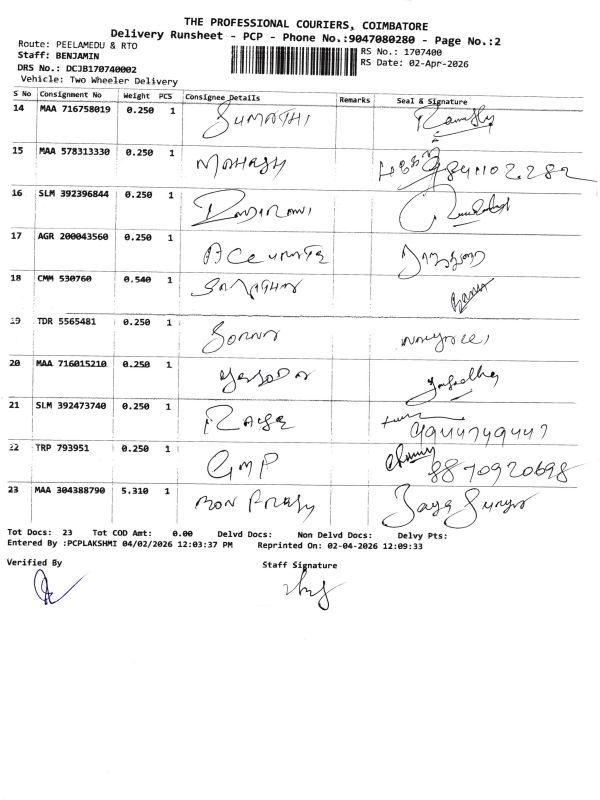 THE PROFESSIONAL COURIERS, COIMBATORE
Delivery Runsheet - PCP - Phone No.:9047080280 - Page No.:2
Route: PEELAMEDU & RTO
Staff: BENJAMIN
RS No.: 1707400
DRS No.: DCJB170740002
RS Date: 02-Apr-2026
Vehicle: Two Wheeler Delivery
S No Consignment No Weight PCS Consignee Details Remarks Seal & Signature
14 MAA 716758019 0.250 1 SUMATHI
15 MAA 578313330 0.250 1 MAHASH 9841102282
16 SLM 392396844 0.250 1
17 AGR 200043560 0.250 1 ACCURATE
18 CMM 530760 0.540 1
19 TDR 5565481 0.250 1
20 MAA 716015210 0.250 1
21 SLM 392473740 0.250 1 9944749447
22 TRP 793951 0.250 1 GMP 8870920698
23 MAA 304388790 5.310 1 Jaya Surya
Tot Docs: 23 Tot COD Amt: 0.00 Delvd Docs: Non Delvd Docs: Delvy Pts:
Entered By :PCPLAKSHMI 04/02/2026 12:03:37 PM Reprinted On: 02-04-2026 12:09:33
Verified By Staff Signature